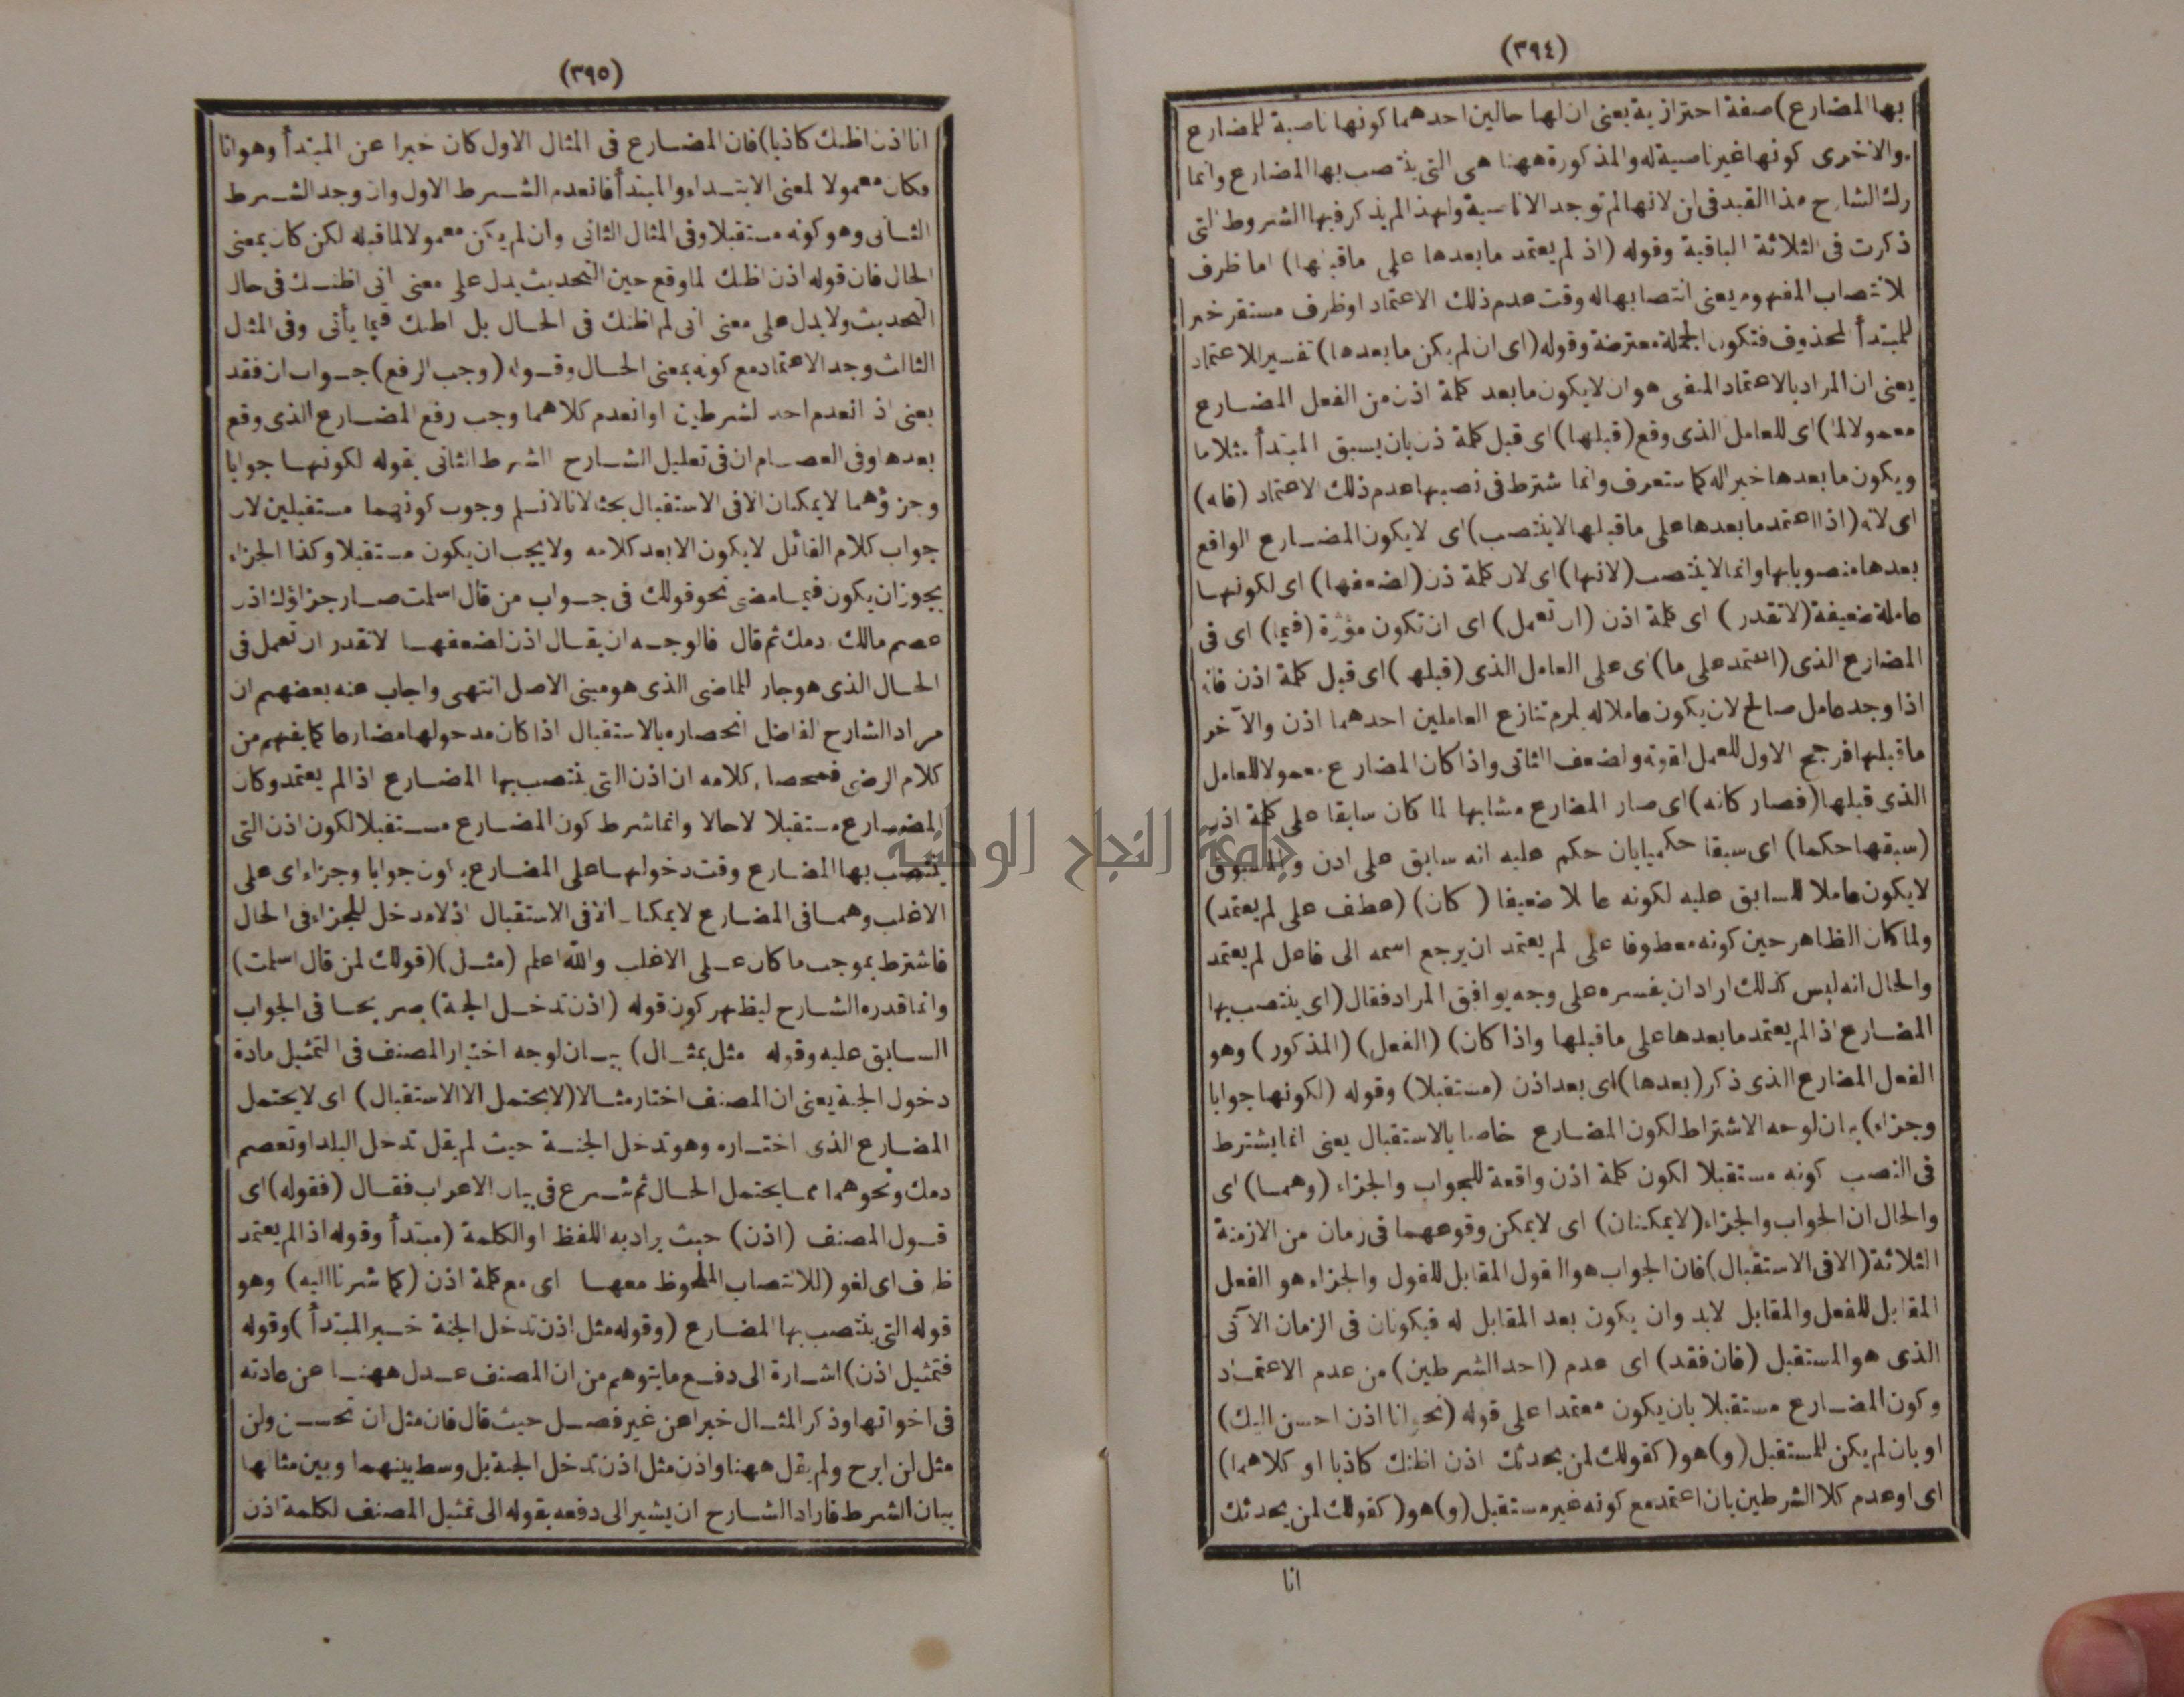 (٣٩٤)
بها المضارع) صفة احترازية يعنى ان لها حالين احدهما كونها ناصبة للمضارع
والاخرى كونها غير ناصبة له والمذكورة ههنا هى التى ينتصب بها المضارع وانما
ترك الشارح هذا القيد فى لن لانها لم توجد الا ناصبة ولهذا لم يذكر فيها الشروط التى
ذكرت فى الثلاثة الباقية وقوله (اذ لم يعتمد ما بعدها على ما قبلها) اما ظرف
لانتصاب المفهوم يعنى انتصابها له وقت عدم ذلك الاعتماد او ظرف مستقر خبر
للمبتدأ المحذوف فتكون الجملة معترضة وقوله (اى ان لم يكن ما بعدها) تفسير للاعتماد
يعنى ان المراد بالاعتماد المنفى هو ان لا يكون ما بعد كلمة اذن من الفعل المضارع
معمولا لما) اى للعامل الذى وقع (قبلها) اى قبل كلمة اذن بان يسبق المبتدأ مثلا ما
ويكون ما بعدها خبرا له كما ستعرف وانما اشترط فى نصبها عدم ذلك الاعتماد (فانه)
اى لانه (اذا اعتمد ما بعدها على ما قبلها لا ينتصب) اى لا يكون المضارع الواقع
بعدها منصوبا بها وانما لا ينتصب (لانها) اى لان كلمة اذن (لضعفها) اى لكونها
عاملة ضعيفة (لا تقدر) اى كلمة اذن (ان تعمل) اى ان تكون مؤثرة (فيما) اى فى
المضارع الذى (اعتمد على ما) اى على العامل الذى (قبلها) اى قبل كلمة اذن فانه
اذا وجد عامل صالح لان يكون عاملا له لزم تنازع العاملين احدهما اذن والآخر
ما قبلها فرجح الاول للعمل لقوته ولضعف الثانى واذا كان المضارع معمولا للعامل
الذى قبلها (فصار كانه) اى صار المضارع مشابها لما كان سابقا على كلمة اذن
(سبقها حكما) اى سبقا حكميا بان حكم عليه انه سابق على اذن والمسبوق
لا يكون عاملا للسابق عليه لكونه عاملا ضعيفا (كان) (عطف على لم يعتمد)
ولما كان الظاهر حين كونه معطوفا على لم يعتمد ان يرجع اسمه الى فاعل لم يعتمد
والحال انه ليس كذلك اراد ان يفسره على وجه يوافق المراد فقال (اى ينتصب بها
المضارع اذا لم يعتمد ما بعدها على ما قبلها واذا كان) (الفعل) (المذكور) وهو
الفعل المضارع الذى ذكر (بعدها) اى بعد اذن (مستقبلا) وقوله (لكونها جوابا
وجزاء) بيان لوجه الاشتراط لكون المضارع خاصا بالاستقبال يعنى انما يشترط
فى النصب كونه مستقبلا لكون كلمة اذن واقعة للجواب والجزاء (وهما) اى
والحال ان الجواب والجزاء (لا يمكنان) اى لا يمكن وقوعهما فى زمان من الازمنة
الثلاثة (الا فى الاستقبال) فان الجواب هو القول المقابل للقول والجزاء هو الفعل
المقابل للفعل والمقابل لابد وان يكون بعد المقابل له فيكونان فى الزمان الآتى
الذى هو المستقبل (فان فقد) اى عدم (احد الشرطين) من عدم الاعتماد
وكون المضارع مستقبلا بان يكون معتمدا على قوله (نحو انا اذن احسن اليك)
او بان لم يكن للمستقبل (و) هو (كقولك لمن يحدثك اذن اظنك كاذبا او كلاهما)
اى او عدم كلا الشرطين بان اعتمد مع كونه غير مستقبل (و) هو (كقولك لمن يحدثك
انا
(٣٩٥)
انا اذن اظنك كاذبا) فان المضارع فى المثال الاول كان خبرا عن المبتدأ وهو انا
وكان معمولا لمعنى الابتداء والمبتدأ فانعدم الشرط الاول وان وجد الشرط
الثانى وهو كونه مستقبلا وفى المثال الثانى وان لم يكن معمولا لما قبله لكن كان بمعنى
الحال فان قوله اذن اظنك لما وقع حين التحديث يدل على معنى انى اظنك فى حال
التحديث ولا يدل على معنى انى لم اظنك فى الحال بل اظنك فيما يأتى وفى المثال
الثالث وجد الاعتماد مع كونه بمعنى الحال وقوله (وجب الرفع) جواب ان فقد
يعنى اذ انعدم احد الشرطين او انعدم كلاهما وجب رفع المضارع الذى وقع
بعدها وفى العصام ان فى تعليل الشارح الشرط الثانى بقوله لكونها جوابا
وجزؤهما لا يمكنان الا فى الاستقبال بحثا لانا لا نسلم وجوب كونهما مستقبلين لان
جواب كلام القائل لا يكون الا بعد كلامه ولا يجب ان يكون مستقبلا وكذا الجزاء
يجوز ان يكون فيما مضى نحو قولك فى جواب من قال اسلمت صار جزاؤك اذن
عصم مالك ودمك ثم قال فالوجه ان يقال اذن لضعفها لا تقدر ان تعمل فى
الحال الذى هو جار للماضى الذى هو مبنى الاصل انتهى واجاب عنه بعضهم ان
مراد الشارح الفاضل انحصاره بالاستقبال اذا كان مدخولها مضارعا كما يفهم من
كلام الرضى فمحصل كلامه ان اذن التى ينتصب بها المضارع اذا لم يعتمد وكان
المضارع مستقبلا لا حالا وانما شرط كون المضارع مستقبلا لكون اذن التى
ينتصب بها المضارع وقت دخولها على المضارع يكون جوابا وجزاء اى على
الاغلب وهما فى المضارع لا يمكنان الا فى الاستقبال اذ لا مدخل للجزاء فى الحال
فاشترط بموجب ما كان على الاغلب والله اعلم (مثل) (قولك لمن قال اسلمت)
وانما قدره الشارح ليظهر كون قوله (اذن تدخل الجنة) صريحا فى الجواب
السابق عليه وقوله مثل بمثال) بيان لوجه اختيار المصنف فى التمثيل مادة
دخول الجنة يعنى ان المصنف اختار مثالا (لا يحتمل الا الاستقبال) اى لا يحتمل
المضارع الذى اختاره وهو تدخل الجنة حيث لم يقل تدخل البلد او تعصم
دمك ونحوهما مما يحتمل الحال ثم شرع فى بيان الاعراب فقال (فقوله) اى
قول المصنف (اذن) حيث يراد به اللفظ او الكلمة (مبتدأ وقوله اذا لم يعتمد
ظرف اى لغو (للانتصاب الملحوظ معها اى مع كلمة اذن (كما شرنا اليه) وهو
قوله التى ينتصب بها المضارع (وقوله مثل اذن تدخل الجنة خبر المبتدأ) وقوله
فتمثيل اذن) اشارة الى دفع ما يتوهم من ان المصنف عدل ههنا عن عادته
فى اخواتها وذكر المثال خبرا عن غير فصل حيث قال فان مثل ان تحسن ولن
مثل لن ابرح ولم يقل ههنا واذن مثل اذن تدخل الجنة بل وسط بينهما وبين مثالها
بيان الشرط فاراد الشارح ان يشير الى دفعه بقوله الى تمثيل المصنف لكلمة اذن
جامعة النجاح الوطنية